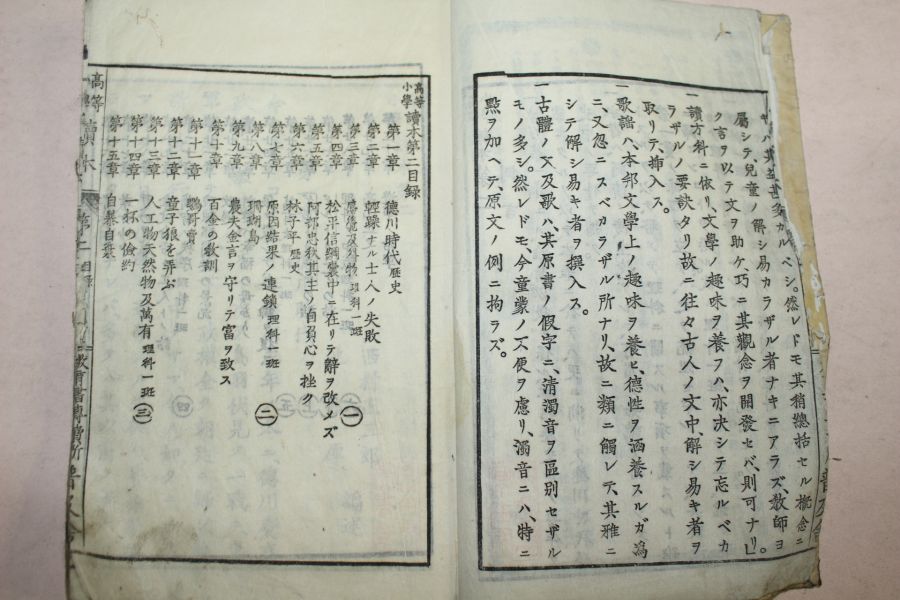 屬シテ、兒童ノ解シ易カラザル者ナキニアラズ、教師ヨ
ク言ヲ以テ文ヲ助ケ、巧ニ其觀念ヲ開發セバ、則可ナリ。
一讀方科ニ依リ文學ノ趣味ヲ養フハ、亦決シテ忘ルベカ
ラザルノ要訣タリ、故ニ往々古人ノ文中、解シ易キ者ヲ
取リテ、挿入ス。
一歌謡ハ、本邦文學上ノ趣味ヲ養ヒ、德性ヲ涵養スルガ爲
ニ、又忽ニスベカラザル所ナリ、故ニ類ニ觸レテ、其雅ニ
シテ解シ易キ者ヲ撰入ス。
一古體ノ文及歌ハ、其原書ノ假字ニ、清濁音ヲ區別セザル
モノ多シ。然レドモ、今童蒙ノ爲便ヲ慮リ、濁音ニハ、特ニ
點ヲ加ヘテ、原文ノ例ニ拘ラズ。
高等小學讀本第二目録
第一章 德川時代 歴史
第二章 輕躁ナル士人ノ失敗
第三章 感覺及外物 理科一班
第四章 松平信綱囊中ニ在リテ辭ヲ改メズ (一)
第五章 阿部忠秋其主ノ自負心ヲ挫ク
第六章 林子平 歴史
第七章 原因結果ノ連鎖 理科一班 (二)
第八章 珊瑚島
第九章 農夫金言ヲ守リテ富ヲ致ス
第十章 百金の教訓
第十一章 鸚哥賣
第十二章 童子狼を弄ぶ
第十三章 人工物天然物及萬有 理科一班 (三)
第十四章 一杯の儉約
第十五章 自暴自棄
高等
讀本
第二
目録